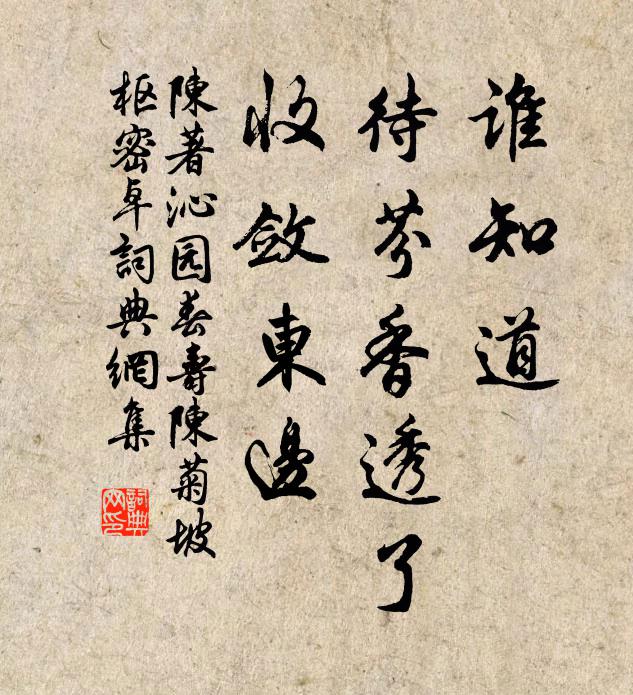 誰知道
待芬香透了
收斂東邊
陳著沁园春壽陳菊坡
枢密卓詞典網集
詞典
网印